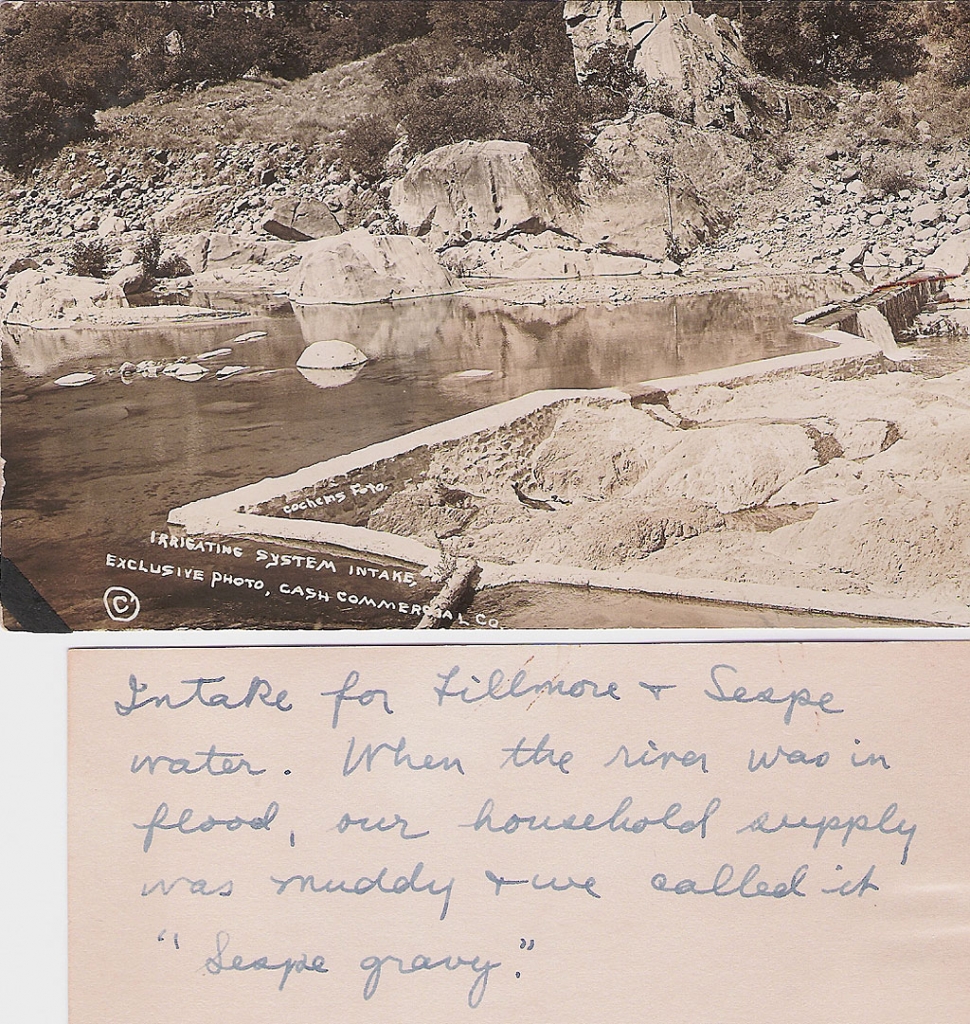 Cochems Foto.
IRRIGATING SYSTEM INTAKE,
EXCLUSIVE PHOTO, CASH COMMERCIAL CO.
©
Intake for Fillmore + Sespe
water. When the river was in
flood, our household supply
was muddy + we called it
"Sespe gravy."